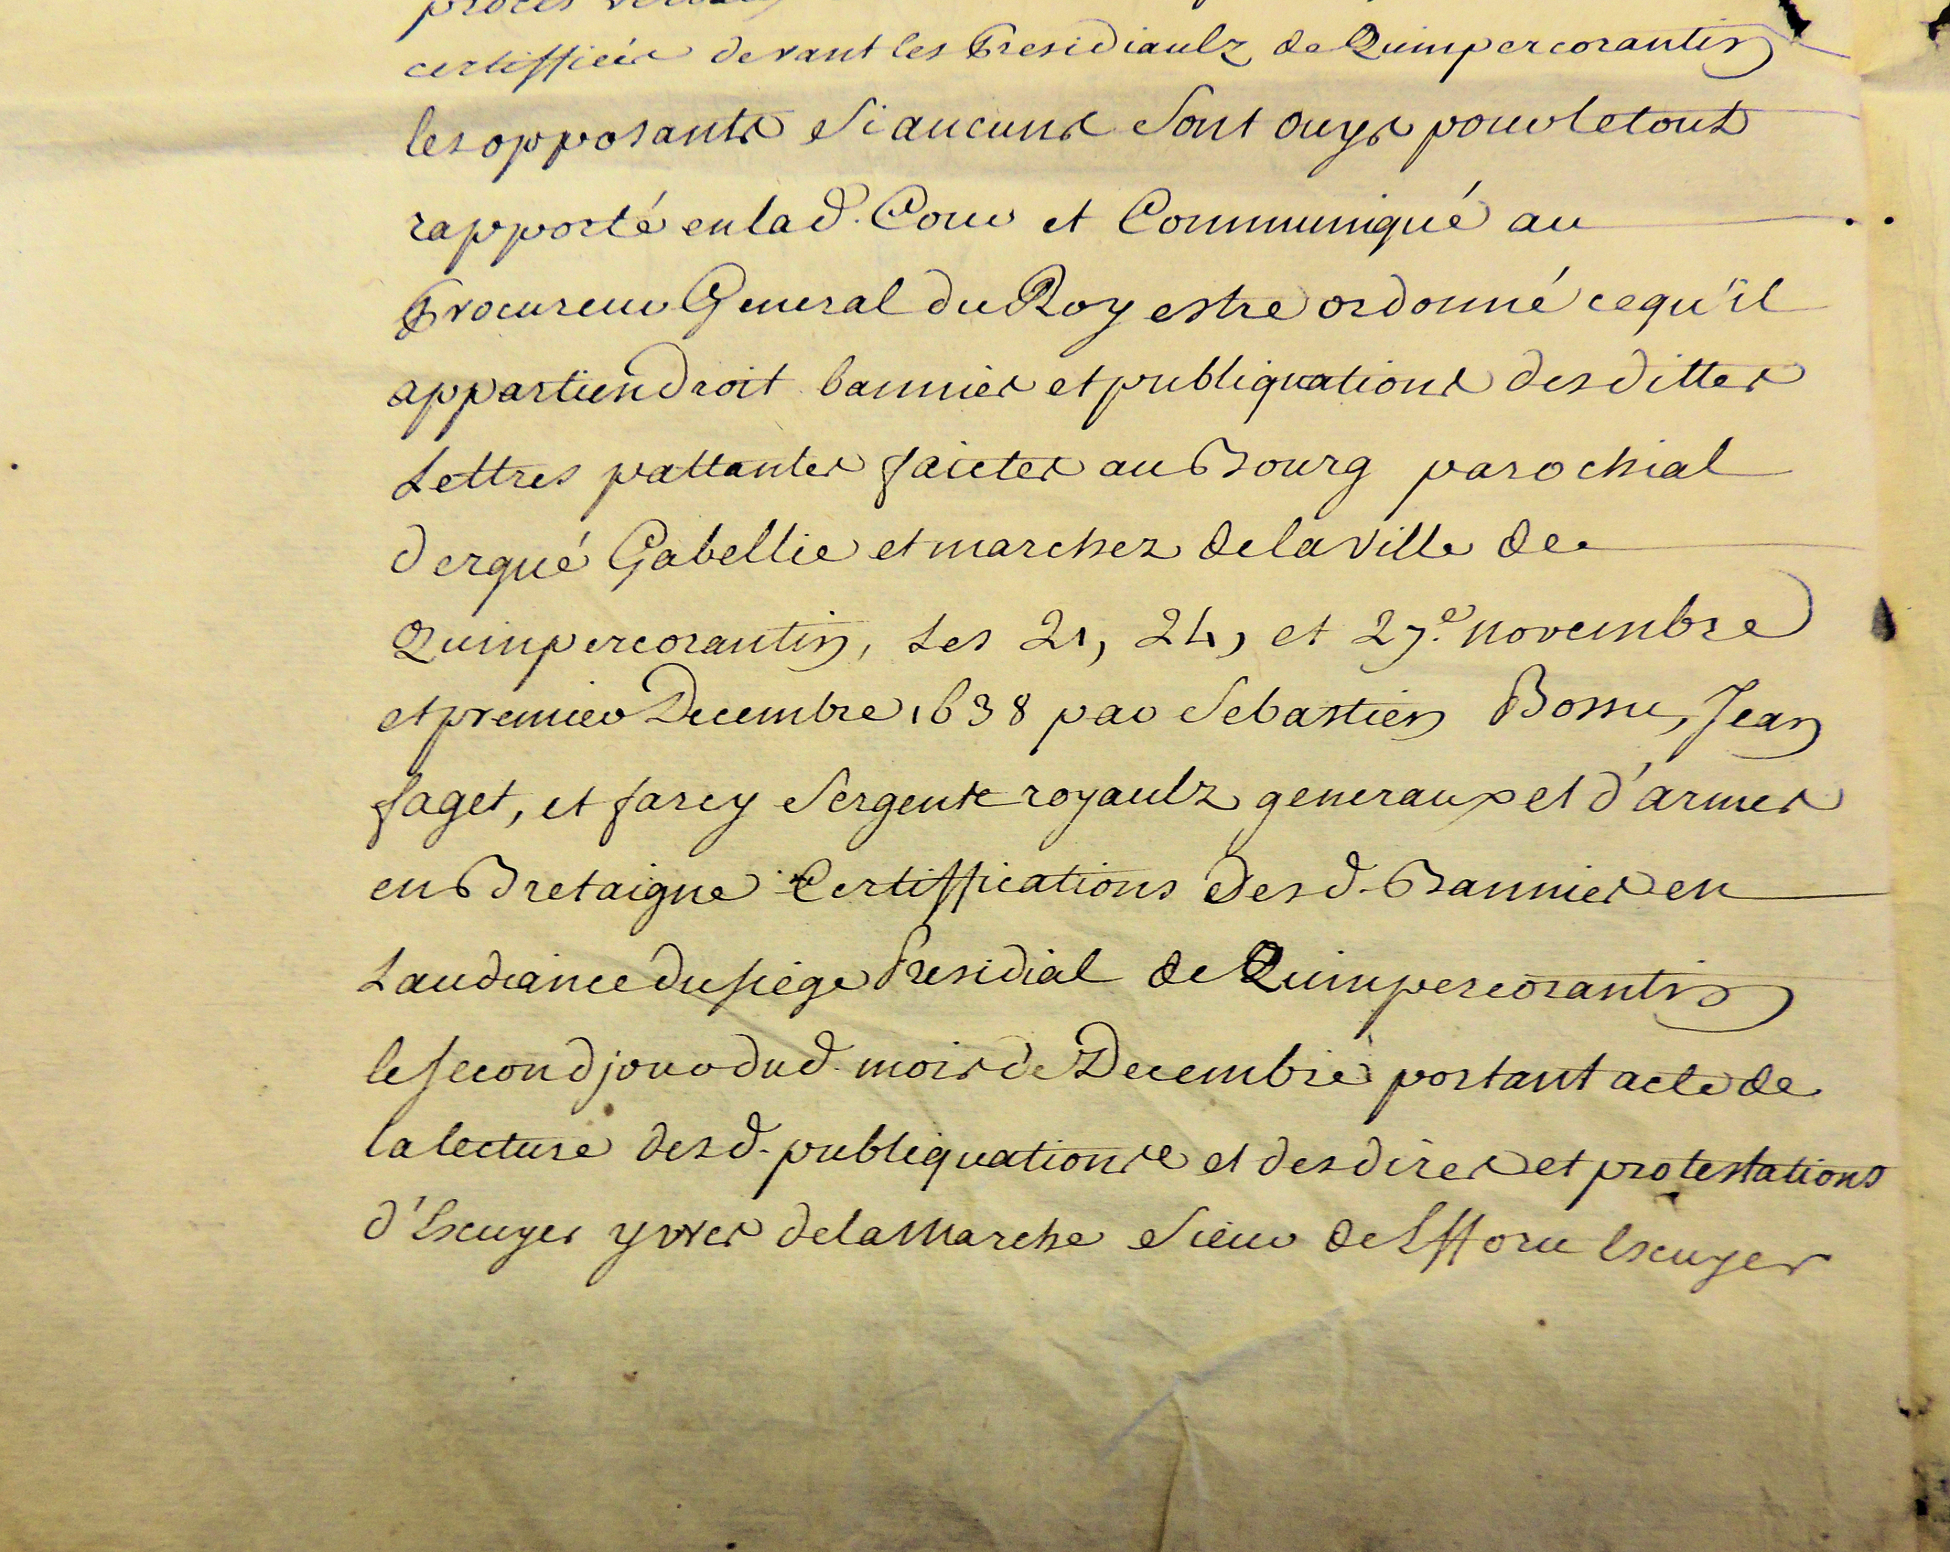 procès
certiffiées devant les Presidiaulz de Quimpercorantin
les opposants si aucuns sont ouys pour le tout
rapporté en lad. Cour et Communiqué au
Procureur General du Roy estre ordonné ce qu'il
appartiendroit bannies et publiquations desdittes
Lettres pattantes faictes au Bourg parochial
d'ergué Gabellic et marchez de la ville de
Quimpercorantin, Les 21, 24, et 27e. novembre
et premier Decembre 1638 par Sebastien Bossu, Jean
faget, et farcy Sergents royaulz generaux et d'armes
en Bretaigne Certiffications desd. Bannies en
Laudiance du siége Presidial de Quimpercorantin
le second jour dud. mois de Decembre portant acte de
la lecture desd. publiquations et des dires et protestations
d'Escuyer yvves de la Marche Sieur de Escuyer